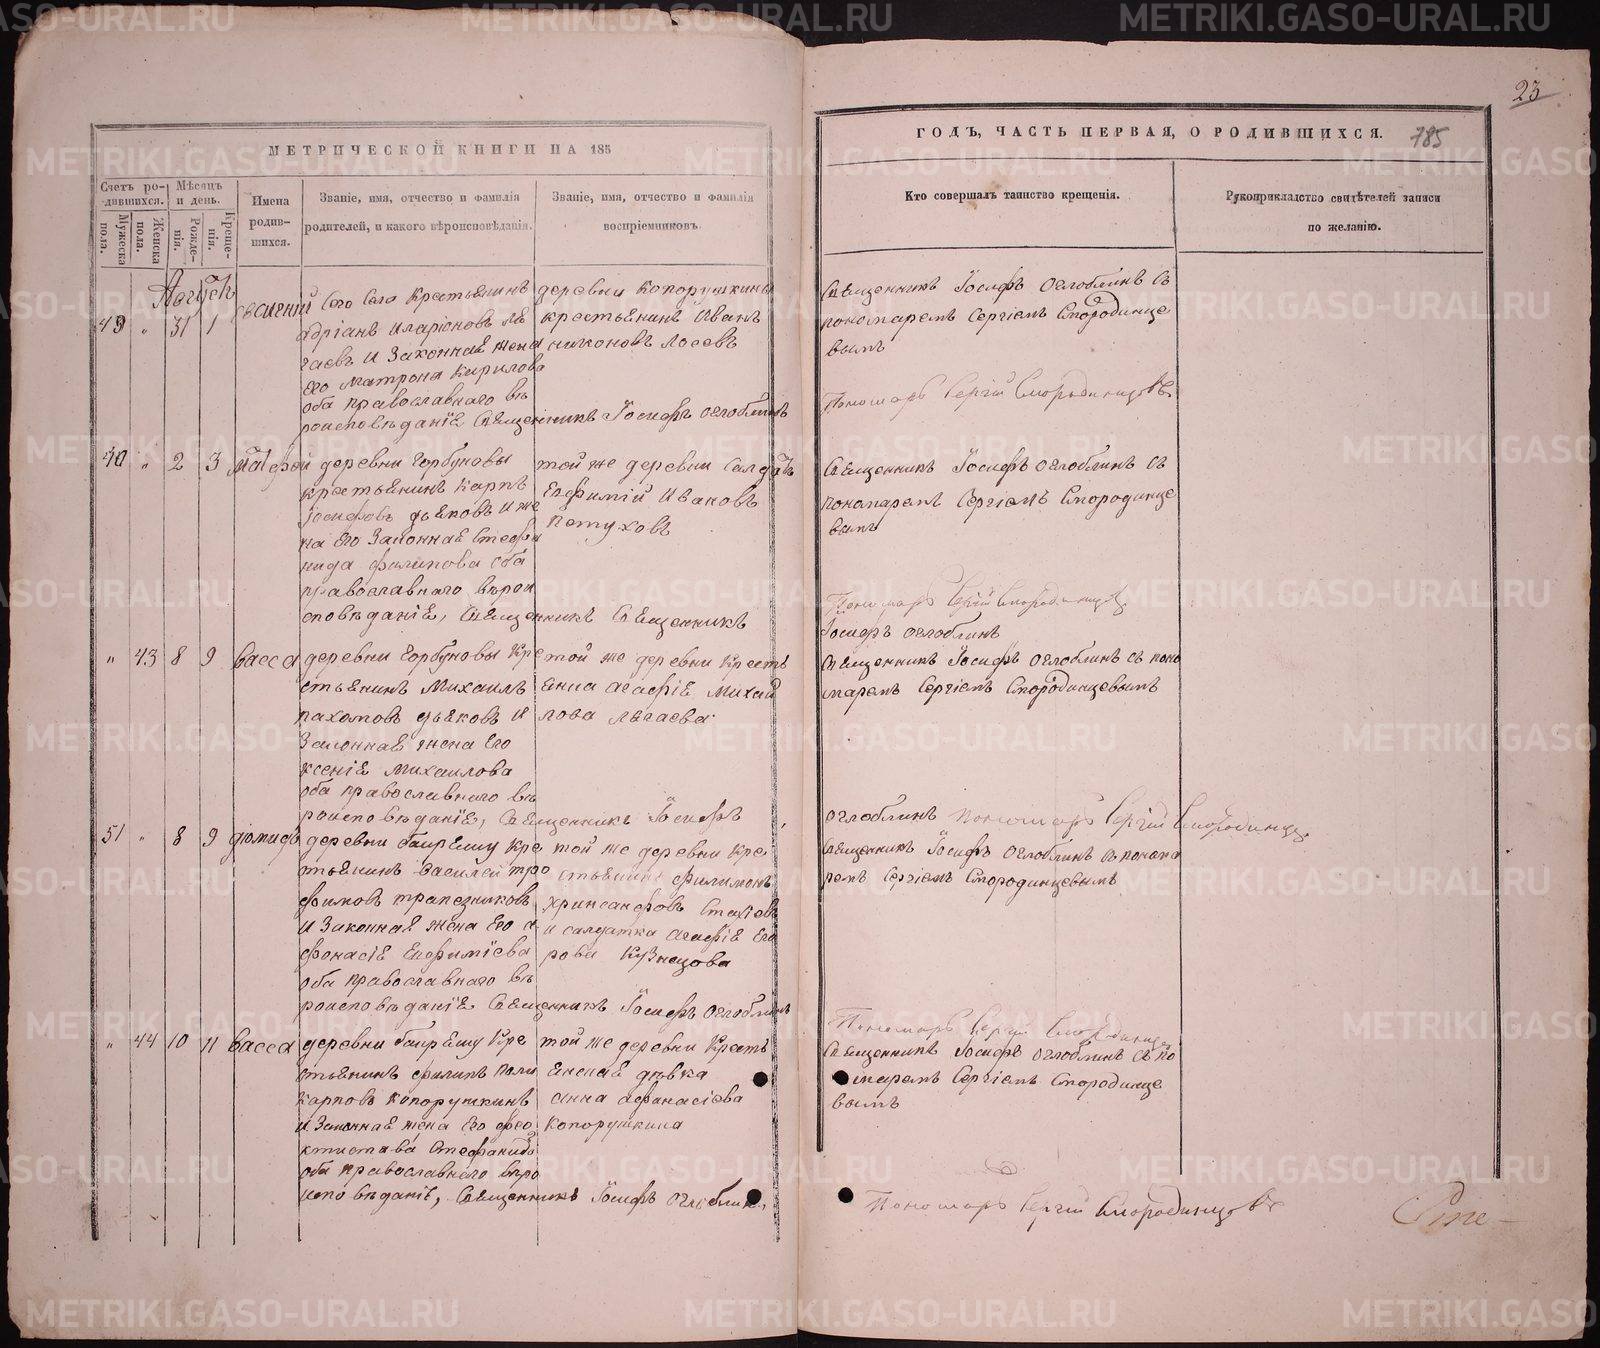 23
785
МЕТРИЧЕСКОЙ КНИГИ НА 185
ГОДЪ, ЧАСТЬ ПЕРВАЯ, О РОДИВШИХСЯ.
Счетъ ро-
дившихся.
Мужеска
пола.
Женска
пола.
Мѣсяцъ
и день.
Рожде-
нія.
Креще-
нія.
Имена
родив-
шихся.
Званіе, имя, отчество и фамилія
родителей, и какого вѣроисповѣданія.
Званіе, имя, отчество и фамилія
воспріемниковъ.
Кто совершалъ таинство крещенія.
Рукоприкладство свидѣтелей записи
по желанію.
Августъ
49 " 31 1
Сего Села Крестьянинъ
Адріанъ Иларіоновъ Ле
гаевъ и Законная жена
Его Матрона Кирилова
оба православнаго вѣ
роисповѣданія Священникъ Іосифъ Оглоблинъ
деревни Копорушкины
крестьянинъ Иванъ
Никоновъ Лосевъ
Священникъ Іосифъ Оглоблинъ съ
пономаремъ Сергіемъ Смородинце
вымъ
Пономарь Сергій Смородинцовъ
" 2 3
деревни Горбуновы
крестьянинъ Карпъ
Іосифовъ Дьяковъ и же
на Его Законная Стефа
нида Филипова оба
православнаго вѣрои
сповѣданія, Священникъ Священникъ
той же деревни Салдатъ
Евфимій Ивановъ
Петуховъ
Священникъ Іосифъ Оглоблинъ съ
пономаремъ Сергіемъ Смородинце
вымъ
Пономарь Сергій Смородинцо
Іосифъ Оглоблинъ
" 43 8 9 Васса
деревни Горбуновы Кре
стьянинъ Михаилъ
Пахомовъ Дьяковъ и
Законная жена Его
Ксенія Михаилова
оба православнаго вѣ
роисповѣданія, Священникъ Іосифъ
той же деревни Кресть
янка Агафія Михаи
лова Легаева
Священникъ Іосифъ Оглоблинъ съ поно
маремъ Сергіемъ Смородинцевымъ
Оглоблинъ Пономарь Сергій Смородинцо
51 " 8 9 Діомидъ
деревни Кре
стьянинъ Василей Тро
фимовъ Трапезниковъ
и Законная жена Его А
фонасія Евфиміева
оба православнаго вѣ
роисповѣданія Священникъ Іосифъ Оглоблинъ
той же деревни Кре
стьянинъ Филимонъ
Хрисанфовъ Стахіевъ
и салдатка Агафія Его
рова Кузнецова
Священникъ Іосифъ Оглоблинъ съ понома
ремъ Сергіемъ Смородинцевымъ
Пономарь Сергій Смородинцо
" 44 10 11 Васса
деревни Кре
стьянинъ Филипъ Поли
карповъ Копорушкинъ
и Законная жена Его Фео
ктистава Стефанида
оба православнаго вѣро
исповѣданія, Священникъ Іосифъ Оглоблинъ
той же деревни Кресть
янская дѣвка
Анна Афанасіева
Копорушкина
Священникъ Іосифъ Оглоблинъ съ по
маремъ Сергіемъ Смородинце
вымъ
Пономарь Сергій Смородинцовъ
METRIKI.GASO-URAL.RU